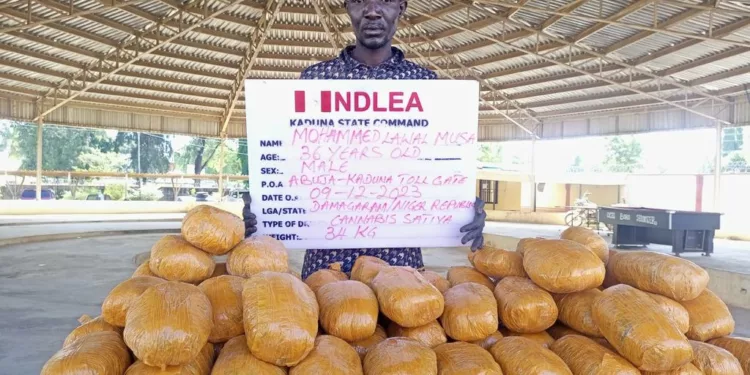 NDLEA
KADUNA STATE COMMAND
NAME MOHAMMED LAWAL MUSA
AGE: 36 YEARS OLD
SEX: MALE
P.O.A ABUJA-KADUNA TOLL GATE
DATE O 09-12-2023
LGA/STATE DAMAGARAM/NIGER REPUBLIC
TYPE OF D CANNABIS SATIVA
34 KG